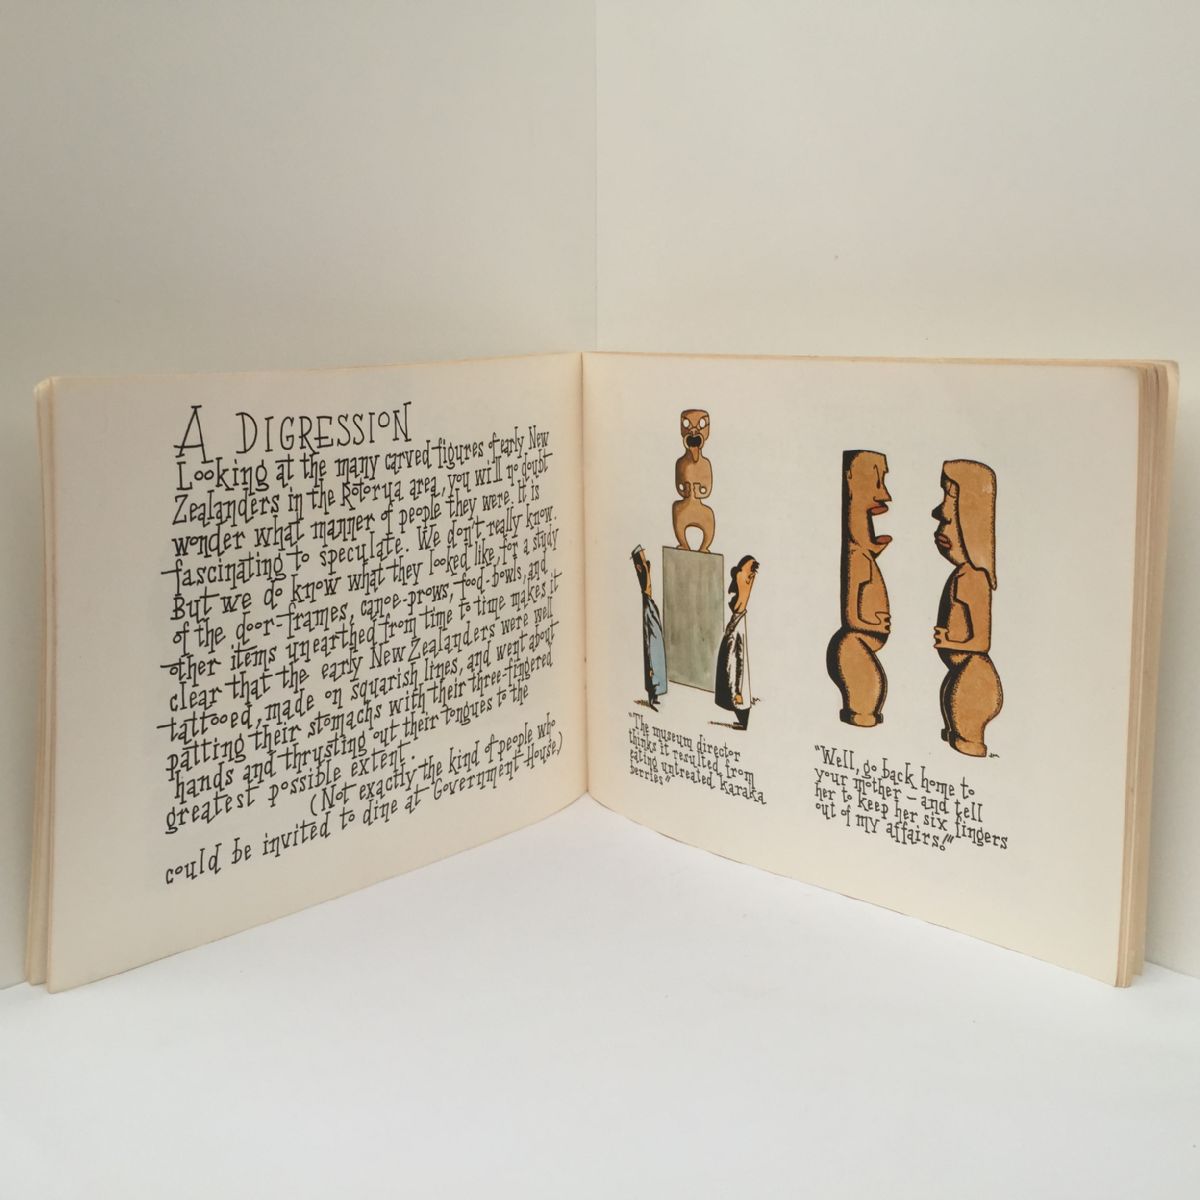 A DIGRESSION
Looking at the many carved figures of early New
Zealanders in the Rotorua area, you will no doubt
wonder what manner of people they were. It is
fascinating to speculate. We don't really know.
But we do know what they looked like, for a study
of the door-frames, canoe-prows, food-bowls, and
other items unearthed from time to time makes it
clear that the early New Zealanders were well
tattooed, made on squarish lines, and went about
patting their stomachs with their three-fingered
hands and thrusting out their tongues to the
greatest possible extent.
(Not exactly the kind of people who
could be invited to dine at Government House.)
"The museum director
thinks it resulted from
eating untreated karaka
berries"
"Well, go back home to
your mother – and tell
her to keep her six fingers
out of my affairs!"